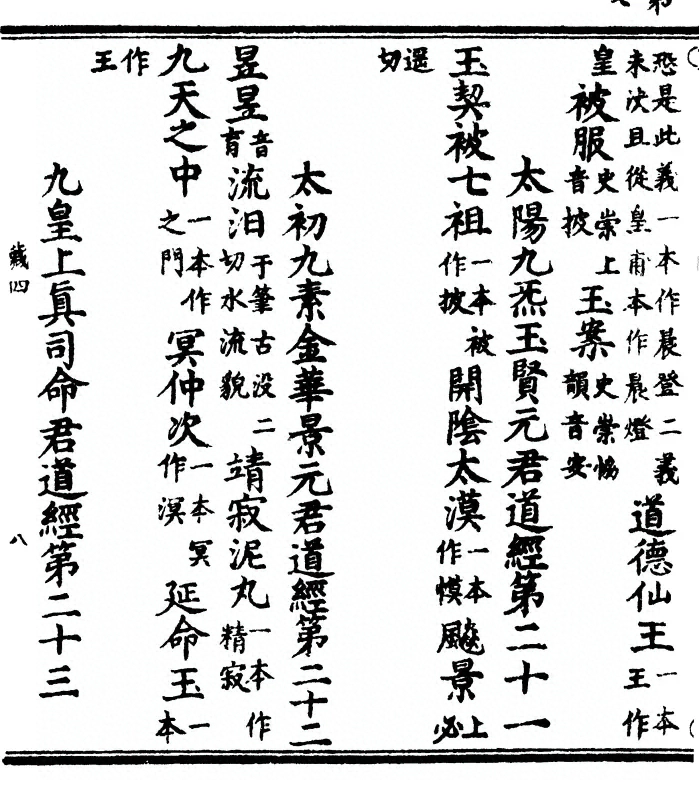 恐是此義一本作晨登二義未決且從皇甫本作晨燈道德仙王一本王作
皇被服史崇上音披玉案史崇愶韻音安
太陽九炁玉賢元君道經第二十一
玉契被七祖一本被作披開陰太漠一本作慔飈景上必
遥切
太初九素金華景元君道經第二十二
昱昱音育流汨于筆古没二切水流貌靖寂泥丸一本作精寂
九天之中一本作之門冥仲次一本冥作溟延命玉一本
作王
九皇上眞司命君道經第二十三
藏四 八